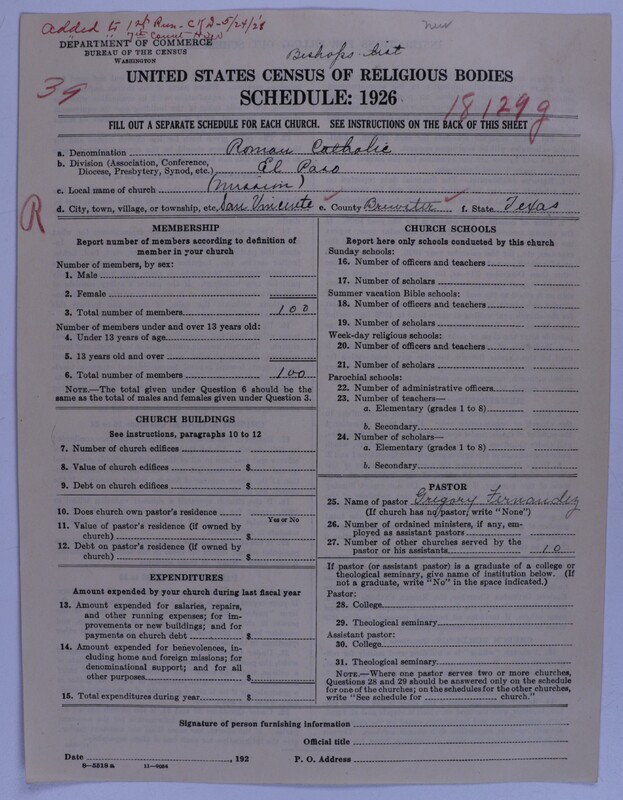 Added to 1st Run - C.T.D - 5/24/28
new
DEPARTMENT OF COMMERCE
BUREAU OF THE CENSUS
WASHINGTON
Bishops list
UNITED STATES CENSUS OF RELIGIOUS BODIES
SCHEDULE: 1926
39
18129g
FILL OUT A SEPARATE SCHEDULE FOR EACH CHURCH. SEE INSTRUCTIONS ON THE BACK OF THIS SHEET
a. Denomination Roman Catholic
b. Division (Association, Conference, Diocese, Presbytery, Synod, etc.) El Paso
c. Local name of church (Mission)
R
d. City, town, village, or township, etc. San Vincente e. County Brewster f. State Texas
MEMBERSHIP
Report number of members according to definition of
member in your church
Number of members, by sex:
1. Male
2. Female
3. Total number of members 100
Number of members under and over 13 years old:
4. Under 13 years of age
5. 13 years old and over
6. Total number of members 100
NOTE.—The total given under Question 6 should be
same as the total of males and females given under Question 3.
CHURCH BUILDINGS
See instructions, paragraphs 10 to 12
7. Number of church edifices
8. Value of church edifices $
9. Debt on church edifices $
10. Does church own pastor's residence
Yes or No
11. Value of pastor's residence (if owned by
church) $
12. Debt on pastor's residence (if owned by
church) $
EXPENDITURES
Amount expended by your church during last fiscal year
13. Amount expended for salaries, repairs,
and other running expenses; for im-
provements or new buildings; and for
payments on church debt $
14. Amount expended for benevolences, in-
cluding home and foreign missions; for
denominational support; and for all
other purposes $
15. Total expenditures during year $
CHURCH SCHOOLS
Report here only schools conducted by this church
Sunday schools:
16. Number of officers and teachers
17. Number of scholars
Summer vacation Bible schools:
18. Number of officers and teachers
19. Number of scholars
Week-day religious schools:
20. Number of officers and teachers
21. Number of scholars
Parochial schools:
22. Number of administrative officers
23. Number of teachers—
a. Elementary (grades 1 to 8)
b. Secondary
24. Number of scholars—
a. Elementary (grades 1 to 8)
b. Secondary
PASTOR
25. Name of pastor Gregory Fernandez
(If church has no pastor, write "None")
26. Number of ordained ministers, if any, em-
ployed as assistant pastors
27. Number of other churches served by the
pastor or his assistants 10
If pastor (or assistant pastor) is a graduate of a college or
theological seminary, give name of institution below. (If
not a graduate, write "No" in the space indicated.)
Pastor:
28. College
29. Theological seminary
Assistant pastor:
30. College
31. Theological seminary
NOTE.—Where one pastor serves two or more churches,
Questions 28 and 29 should be answered only on the schedule
for one of the churches; on the schedules for the other churches,
write "See schedule for church."
Signature of person furnishing information
Official title
Date , 192 P. O. Address
8—5518a 11—9024